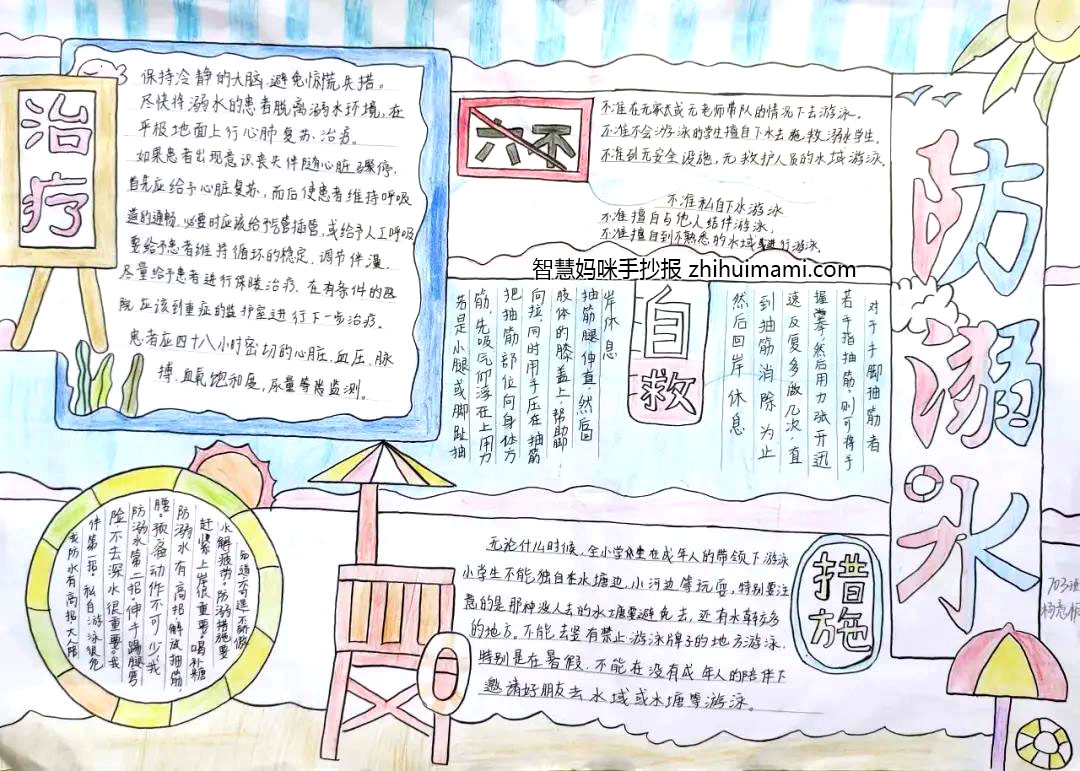 防溺水
治疗
保持冷静的大脑,避免惊慌失措。
尽快将溺水的患者脱离溺水环境,在
平极地面上行心肺复苏、治疗。
如果患者出现意识丧失伴随心脏骤停,
首先应给予心脏复苏,而后使患者维持呼吸
道的通畅,必要时应该给予气管插管,或给予人工呼吸
要给予患者维持循环的稳定,调节体温
尽量给予患者进行保暖治疗,在有条件的医
院应该到重症的监护室进行下一步治疗。
患者应四十八小时密切的心脏、血压、脉
搏、血氧饱和度,尿量等监测。
六不
不准在无家长或无老师带队的情况下去游泳。
不准不会游泳的学生擅自下水去施救溺水学生。
不准到无安全设施,无救护人员的水域游泳。
不准私自下水游泳
不准擅自与他人结伴游泳。
不准擅自到不熟悉的水域进行游泳
智慧妈咪手抄报 zhihuimami.com
自救
对于手脚抽筋者
若手指抽筋,则可将手
握拳然后用力张开迅
速反复多做几次,直
到抽筋消除为止
然后回岸休息
若是小腿或脚趾抽
筋,先吸气仰浮在上用力
把抽筋部位向身体方
向拉,同时用手压在抽筋
肢体的膝盖上,帮助脚
抽筋腿伸直,然后回
岸休息
水解疲劳。防溺措施要
赶紧上岸很重要。喝补糖
防溺水有高招,解放抽筋,
腰。预备动作不可少,我
防溺水第二招,伸手踢腿弯
险。不去深水很重要。我
伴第一招。私自游泳很危
我防水有高招,大人陪
措施
无论什么时候,全小学在成年人的带领下游泳
小学生不能独自在水塘边、小河边等玩耍,特别要注
意的是那种没人去的水塘要避免去,还有水较多
的地方。不能去竖有禁止游泳牌子的地方游泳,
特别是在暑假,不能在没有成年人的陪伴下
邀请好朋友去水域或水塘等游泳。
703班